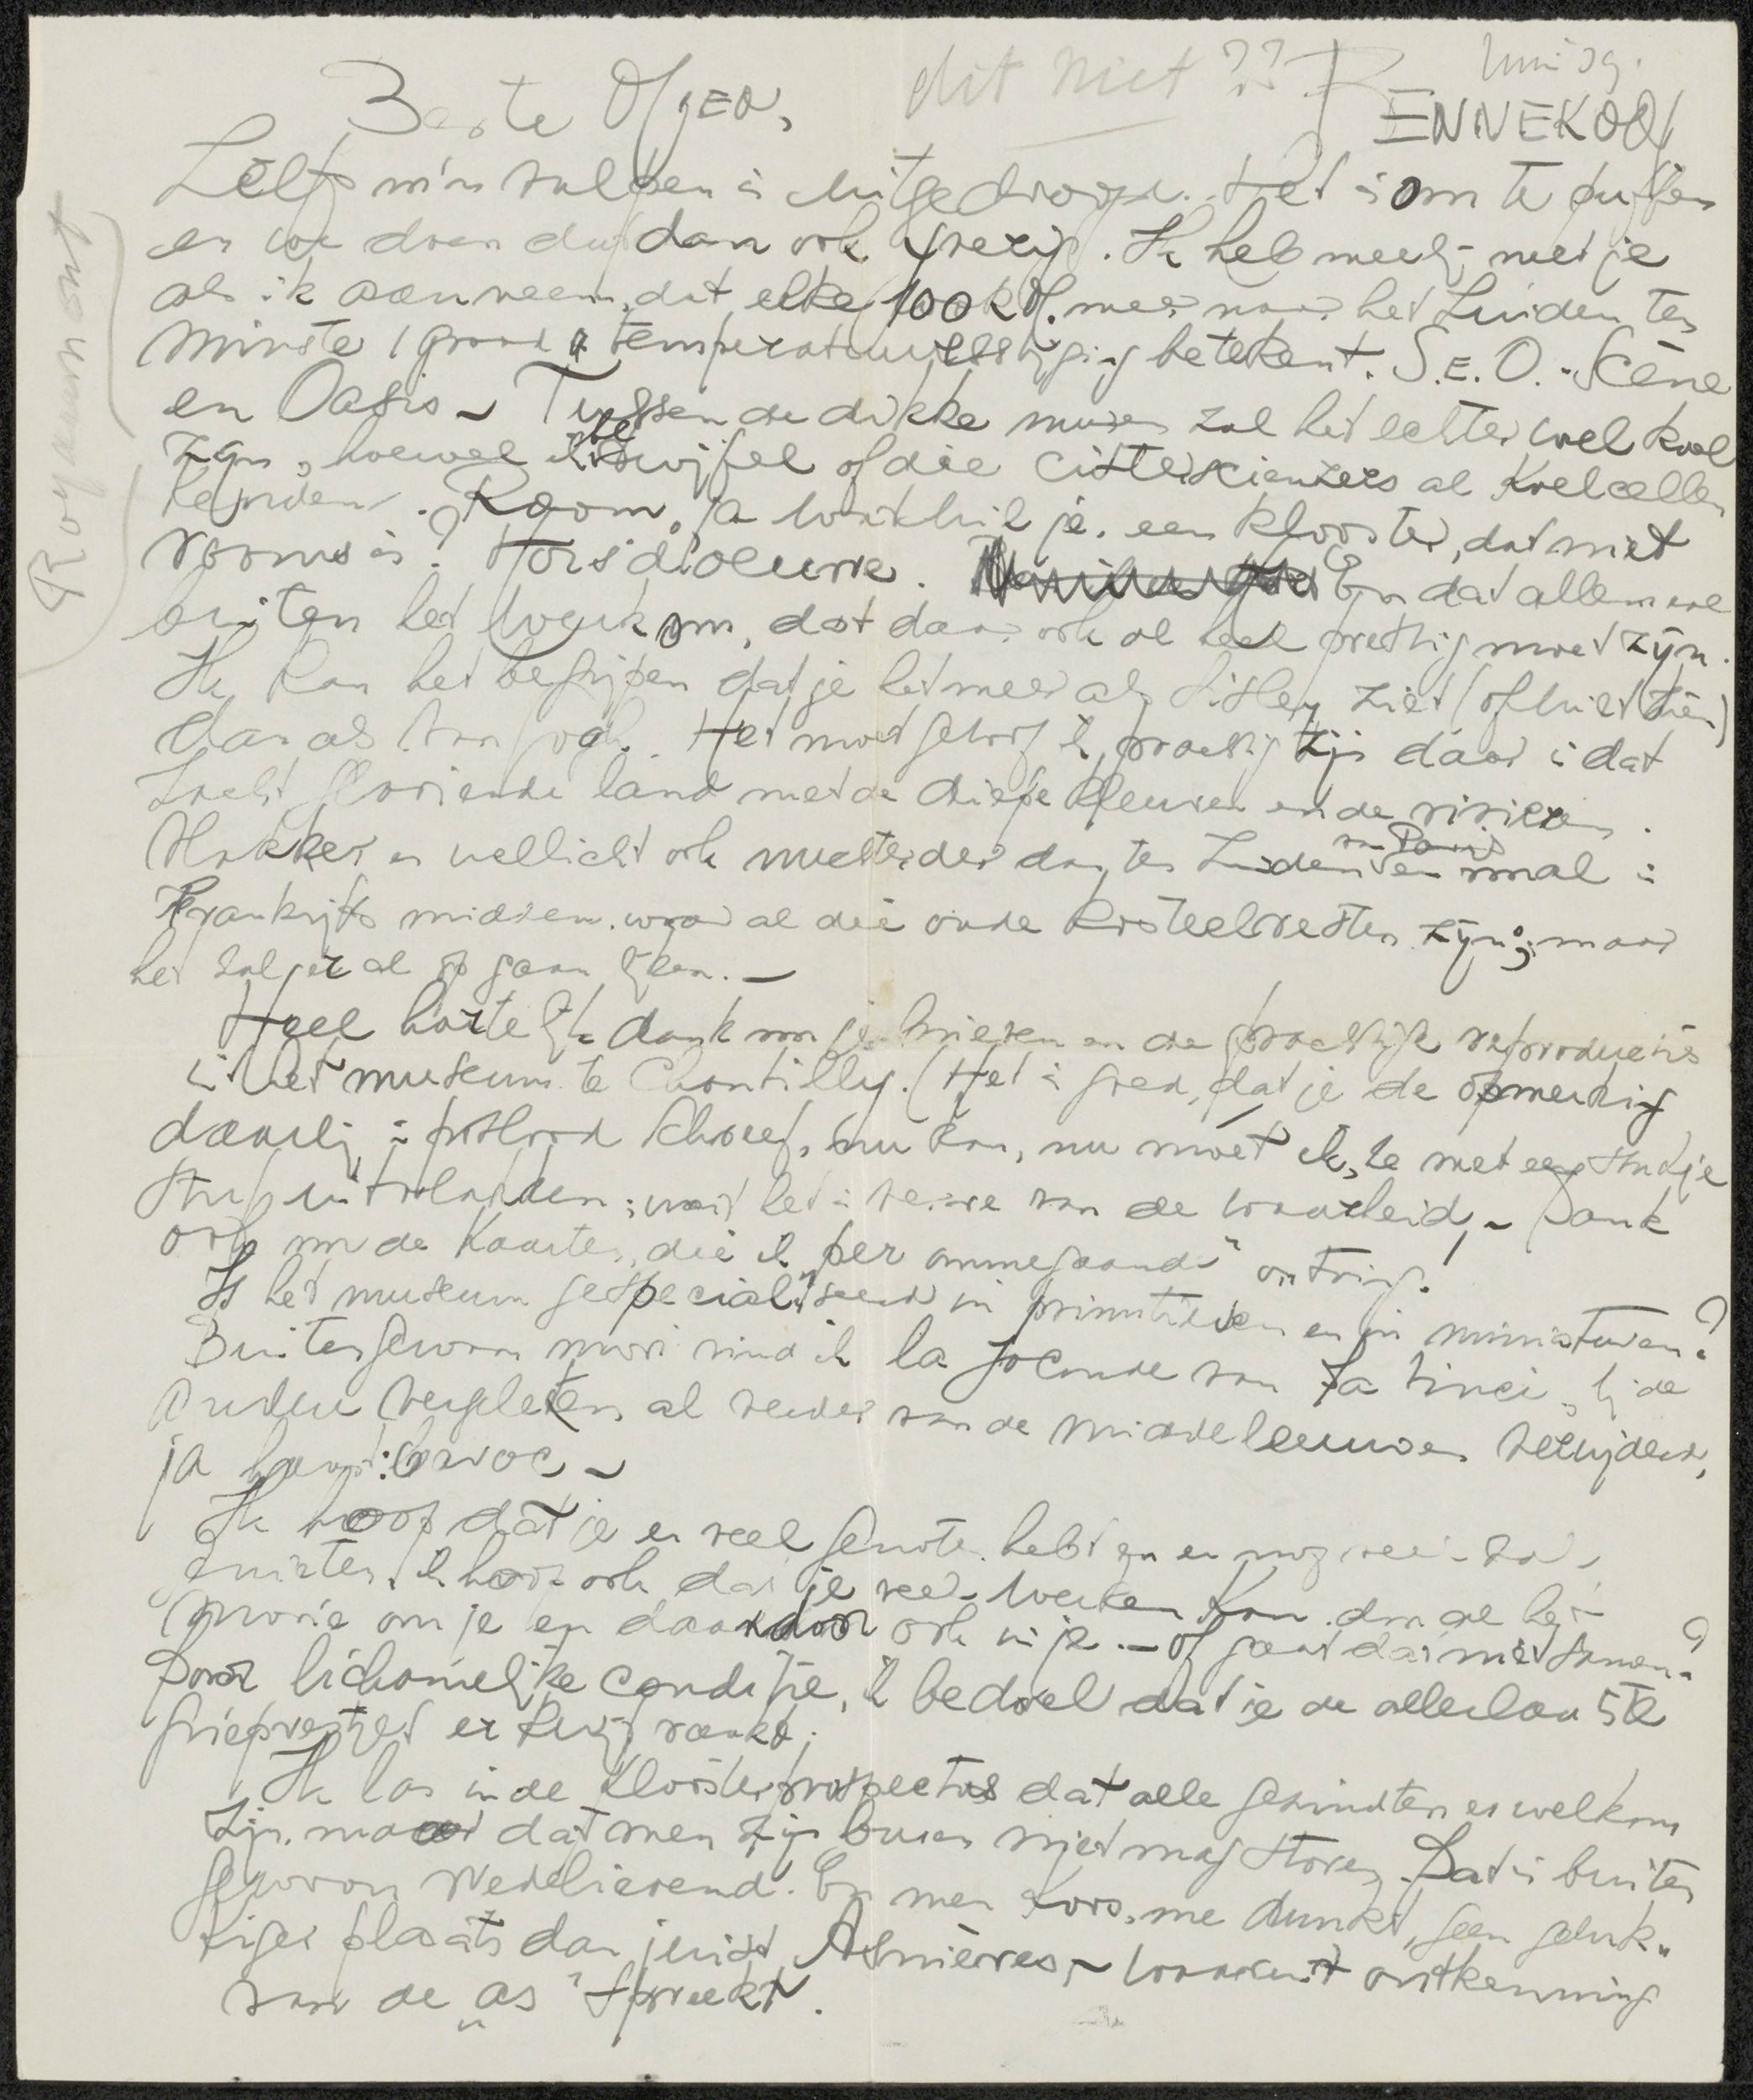 dit niet ??
Juni 39.
BENNEKOM
Beste Olger,
Zelfs m'n vulpen is uitgedroogd. Het is om te puffen
en we doen dat dan ook ijverig. Ik heb meelij met je
als ik aanneem, dat elke 100 k.M. meer naar het Zuiden ten
minste 1 graad temperatuurstijging betekent. S.E.O. - Scène
en Oasis - Tussen de dikke muren zal het echter wel koel
zijn, hoewel ik betwijfel of die cisterscienzers al koelcellen
kenden. Room, ja wat wil je, een klooster, dat niet
rooms is? Hors d'oeuvre. En dat allemaal
buiten het werk om, dat daar ook al heel prettig moet zijn.
Ik kan het begrijpen dat je het meer als Sisley ziet (of wilt zien)
dan als Van Gogh. Het moet geloof ik prachtig zijn daar in dat
zacht glooiende land met de diepe kleuren en de rivieren.
Vlakker en wellicht ook nuchterder dan ten Zuiden van Parijs en maal in
Frankrijks midden, waar al die oude kasteelresten zijn; maar
het zal je er al op gaan lijken. -
Heel hartelijk dank voor je brieven en de prachtige reproducties
uit het museum te Chantilly. (Het is goed, dat je de opmerking
daarbij in potlood schreef, nu kan, nu moet ik, ze met een stukje
stuf uitvlakken; want het is bezijden van de waarheid, - Dank
ook voor de kaarten, die ik „per ommegaande" ontving!
Is het museum gespecialiseerd in primitieven en in miniaturen?
Buitengewoon mooi vind ik la Joconde van Da Vinci, bij de
andere vergeleken al verder van de middeleeuwen verwijderd,
ja haast: barok, -
Ik hoop dat je er veel genoten hebt en er nog veel zal
genieten. Ik hoop ook dat je veel werken kan door al het
mooie om je en daardoor ook in je. - Of gaat dat niet samen?
Door lichamelijke conditie, ik bedoel dat je de allerlaatste
griepvezel er kwijt raakt.
Ik las in de kloosterprospectus dat alle gezindten er welkom
zijn, maar dat men zijn buren niet mag storen. Dat is buiten
gewoon Nederlierend. En men koos, me dunkt, geen geluk-
kiger plaats dan juist Asnières, - waaruit ontkenning
van de „as" spreekt.
Royaumont